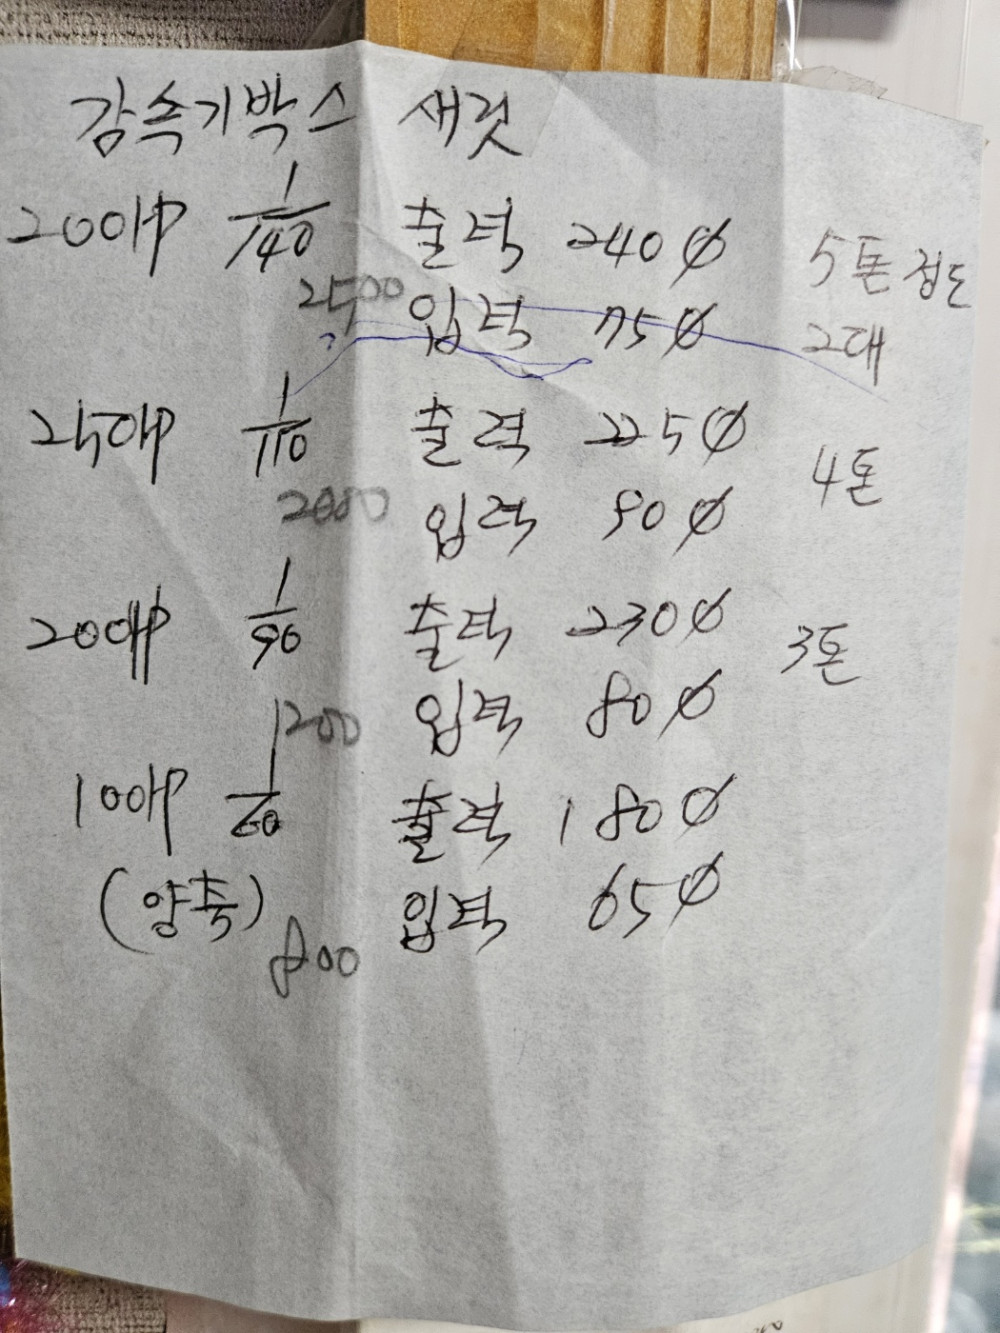 감속기박스 새것
200HP 1/140 출력 240∅ 5톤 정도
2500 입력 75∅ 2대
250HP 1/110 출력 225∅ 4톤
2000 입력 90∅
200HP 1/90 출력 230∅ 3톤
1200 입력 80∅
100HP 1/60 출력 180∅
(양축) 입력 65∅
800